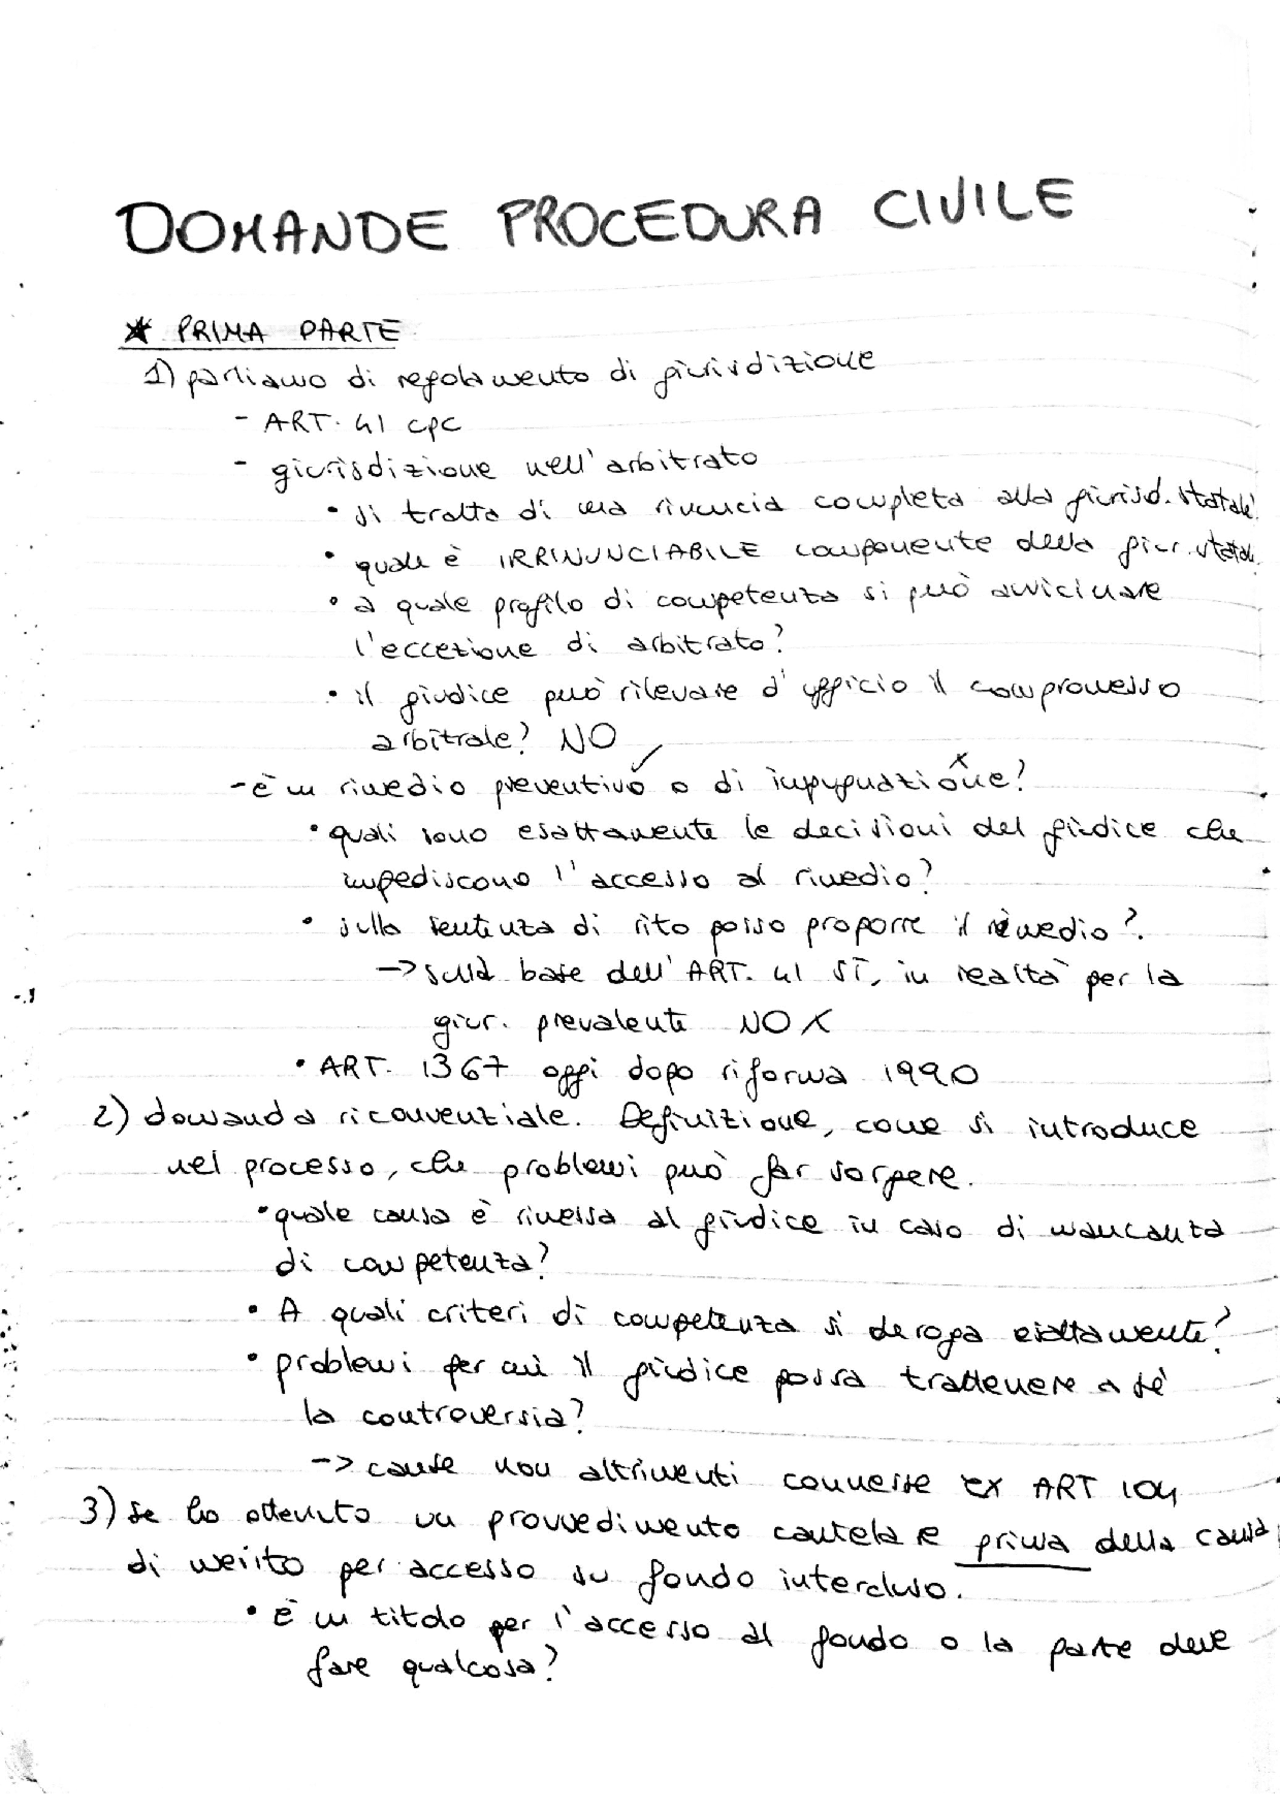 DOMANDE PROCEDURA CIVILE
★ PRIMA PARTE
1) parliamo di regolamento di giurisdizione
- ART. 41 cpc
- giurisdizione nell'arbitrato
• si tratta di una rinuncia completa alla giurisd. statale?
• quale è IRRINUNCIABILE componente della giur. statale
• a quale profilo di competenza si può avvicinare
l'eccezione di arbitrato?
• il giudice può rilevare d'ufficio il compromesso
arbitrale? NO
- è un rimedio preventivo ✓ o di impugnazione x?
• quali sono esattamente le decisioni del giudice che
impediscono l'accesso al rimedio?
• sulla sentenza di rito posso proporre il rimedio?
→ sulla base dell'ART. 41 SÌ, in realtà per la
giur. prevalente NO X
• ART. 1367 oggi dopo riforma 1990
2) domanda riconvenziale. Definizione, come si introduce
nel processo, che problemi può far sorgere.
• quale causa è rimessa al giudice in caso di mancanza
di competenza?
• A quali criteri di competenza si deroga esattamente?
• problemi per cui il giudice possa trattenere a sé
la controversia?
→ cause non altrimenti connesse ex ART 104
3) se ho ottenuto un provvedimento cautelare prima della causa
di merito per accesso su fondo intercluso.
• È un titolo per l'accesso al fondo o la parte deve
fare qualcosa?